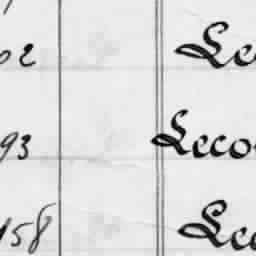 02 Le
93 Leco
158 Lec